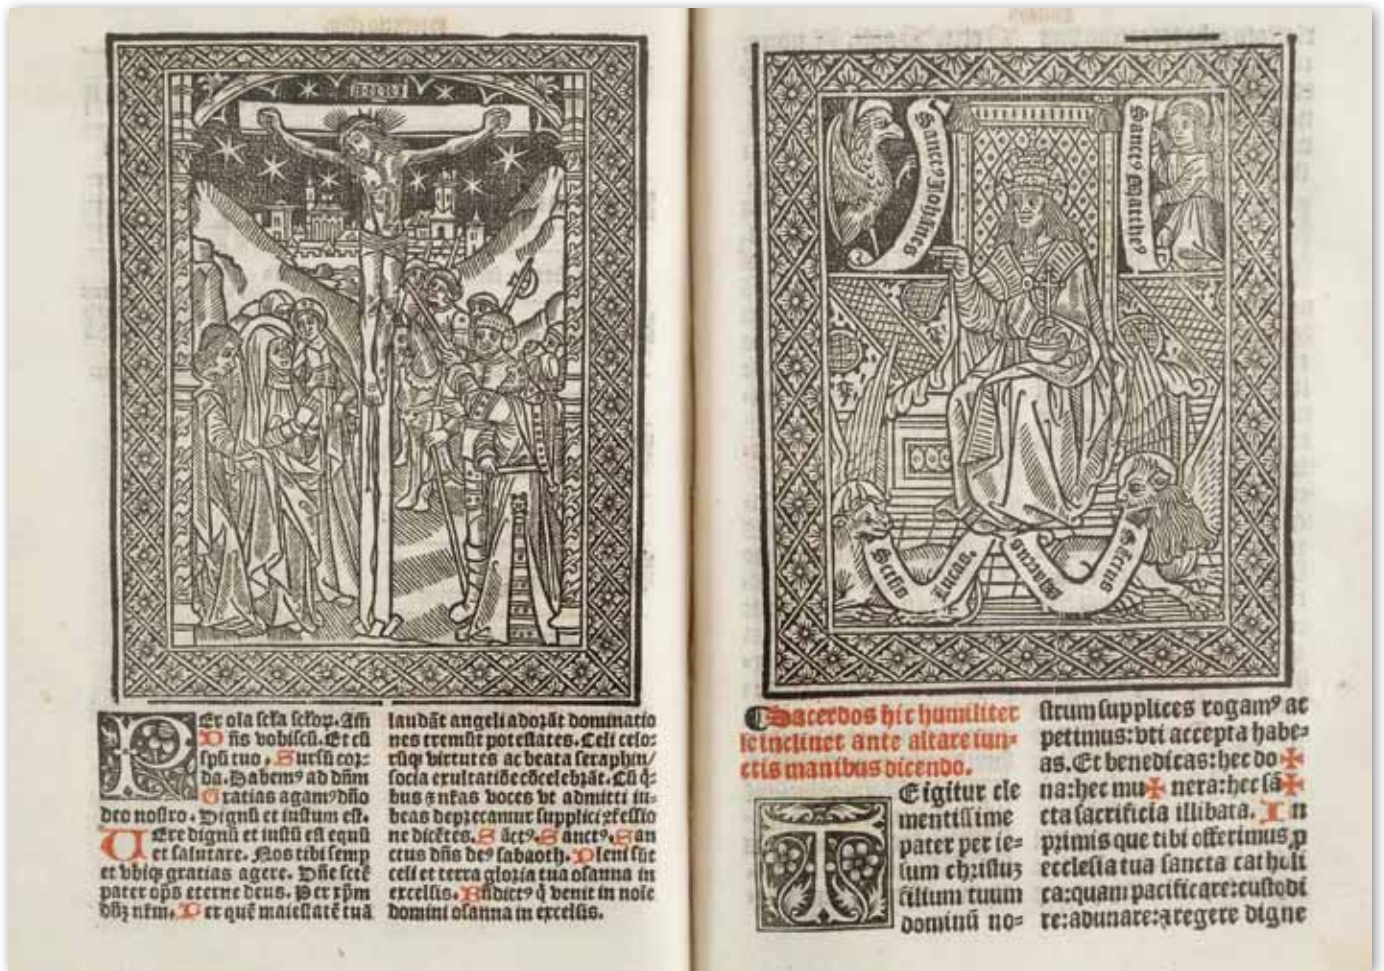 Sanct⁹ Johānes
Sanct⁹ Matthe⁹
Lucas.
Marcus
Per oīa scƚa scƚoꝝ. Amē
Dn̄s vobiscū. Et cū
spū tuo. Sursū cor-
da. Habem⁹ ad dn̄m
Gratias agam⁹ dn̄o
deo nostro. Dignū et iustum est.
Vere dignū et iustū est equū
et salutare. Nos tibi semp
et vbiqꝫ gratias agere. Dn̄e scē
pater oп̄s eterne deus. Per xp̄m
dn̄ꝫ nr̄m. Per quē maiestatē tuā
laudāt angeli adorāt dominatio
nes tremūt potestates. Celi celo-
rūqꝫ virtutes ac beata seraphin/
socia exultatiōe cōcelebrāt. Cū q̄-
bus ⁊ nr̄as voces vt admitti iu-
beas deprecamur supplici ꝯfessio
ne dicētes. Sāct⁹. Sanct⁹. San
ctus dn̄s de⁹ sabaoth. Pleni sūt
celi et terra gloria tua osanna in
excelsis. Bn̄dict⁹ q̇ venit in noīe
domini osanna in excelsis.
¶ Sacerdos hic humiliter
se inclinet ante altare iun-
ctis manibus dicendo.
TE igitur cle
mentissime
pater per ie-
sum christuꝫ
filium tuum
dominū no-
strum supplices rogam⁹ ac
petimus: vti accepta habe-
as. Et benedicas: hec do ✠
na: hec mu ✠ nera: hec sā ✠
cta sacrificia illibata. In
primis que tibi offerimus ꝓ
ecclesia tua sancta catholi
ca: quam pacificare: custodi
re: adunare: ⁊ regere digne